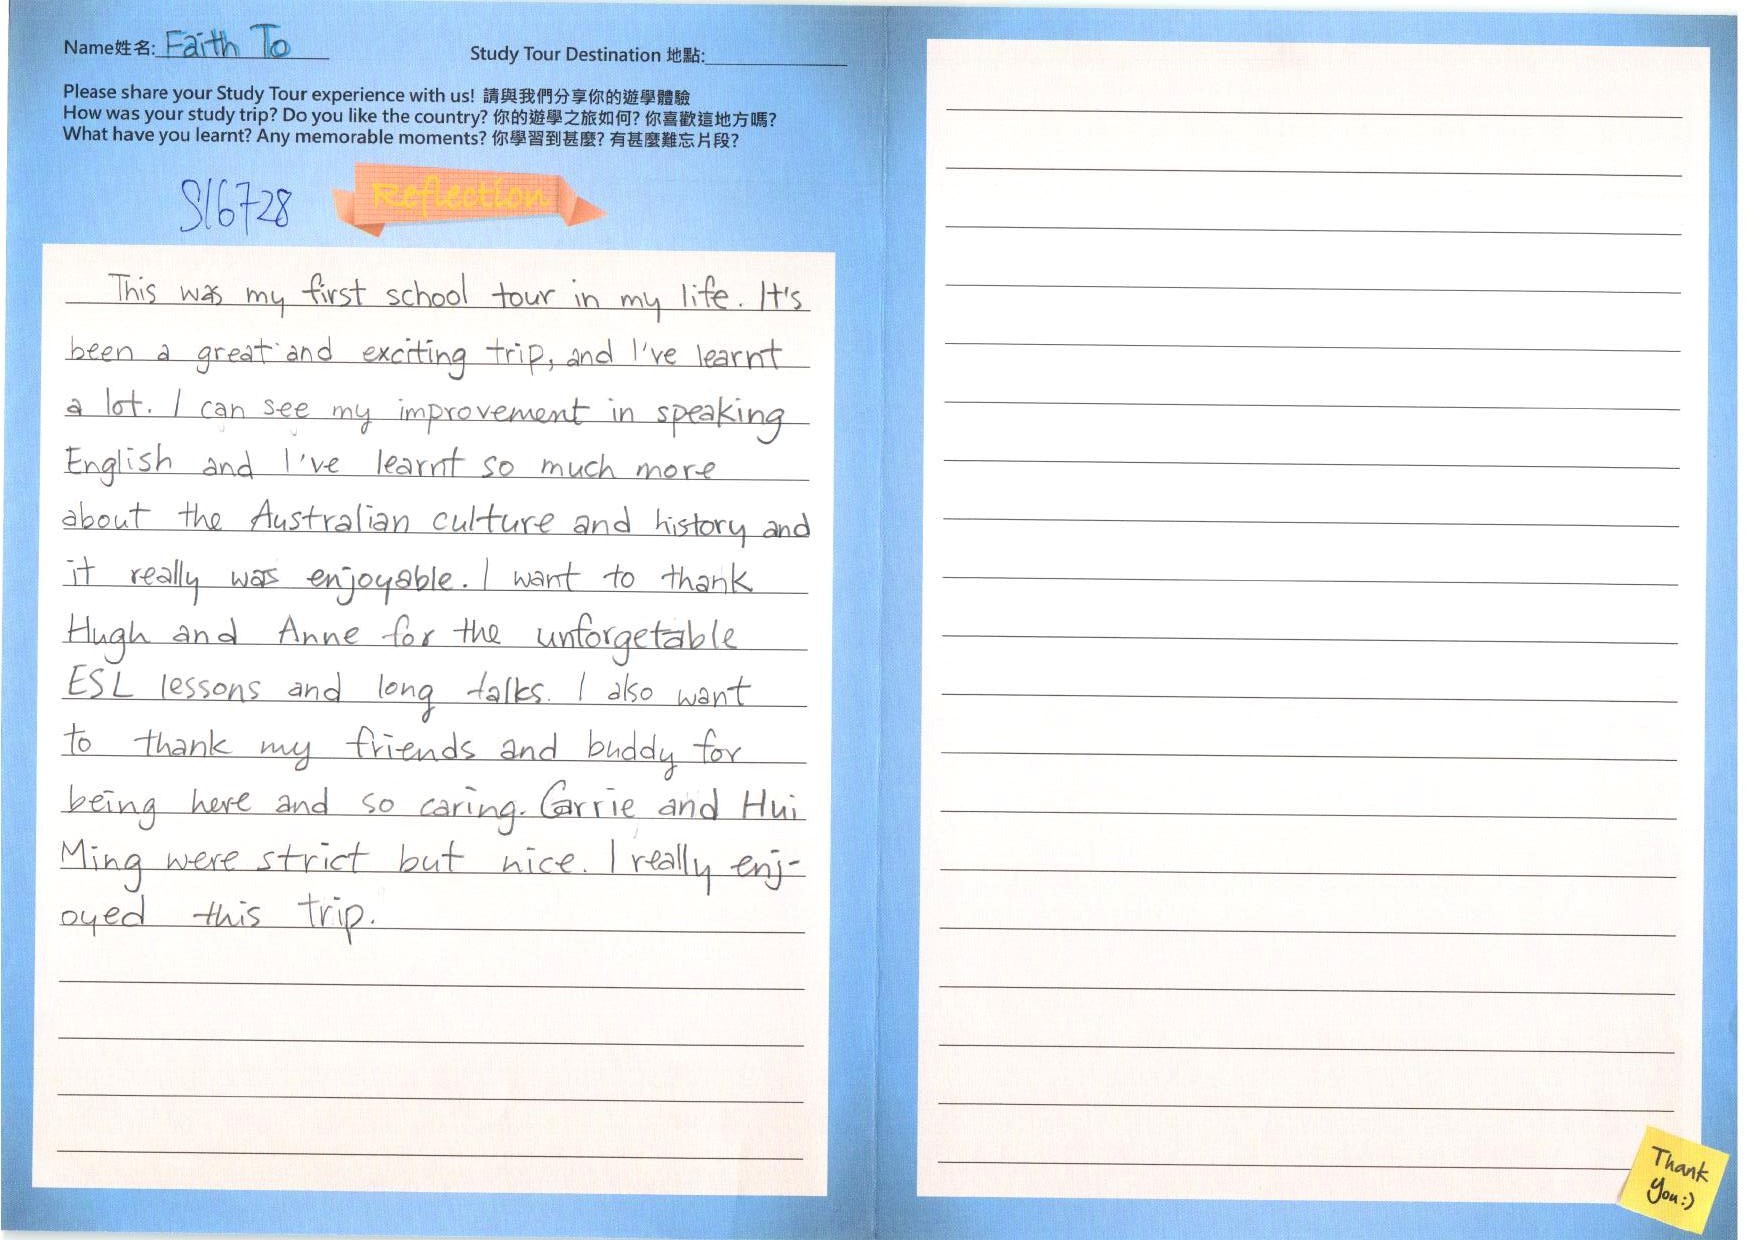 Name姓名: Faith To
Study Tour Destination 地點:
Please share your Study Tour experience with us! 請與我們分享你的遊學體驗
How was your study trip? Do you like the country? 你的遊學之旅如何? 你喜歡這地方嗎?
What have you learnt? Any memorable moments? 你學習到甚麼? 有甚麼難忘片段?
S16728
Reflection
This was my first school tour in my life. It's
been a great and exciting trip, and I've learnt
a lot. I can see my improvement in speaking
English and I've learnt so much more
about the Australian culture and history and
it really was enjoyable. I want to thank
Hugh and Anne for the unforgetable
ESL lessons and long talks. I also want
to thank my friends and buddy for
being here and so caring. Carrie and Hui
Ming were strict but nice. I really enj-
oyed this trip.
Thank
You:)